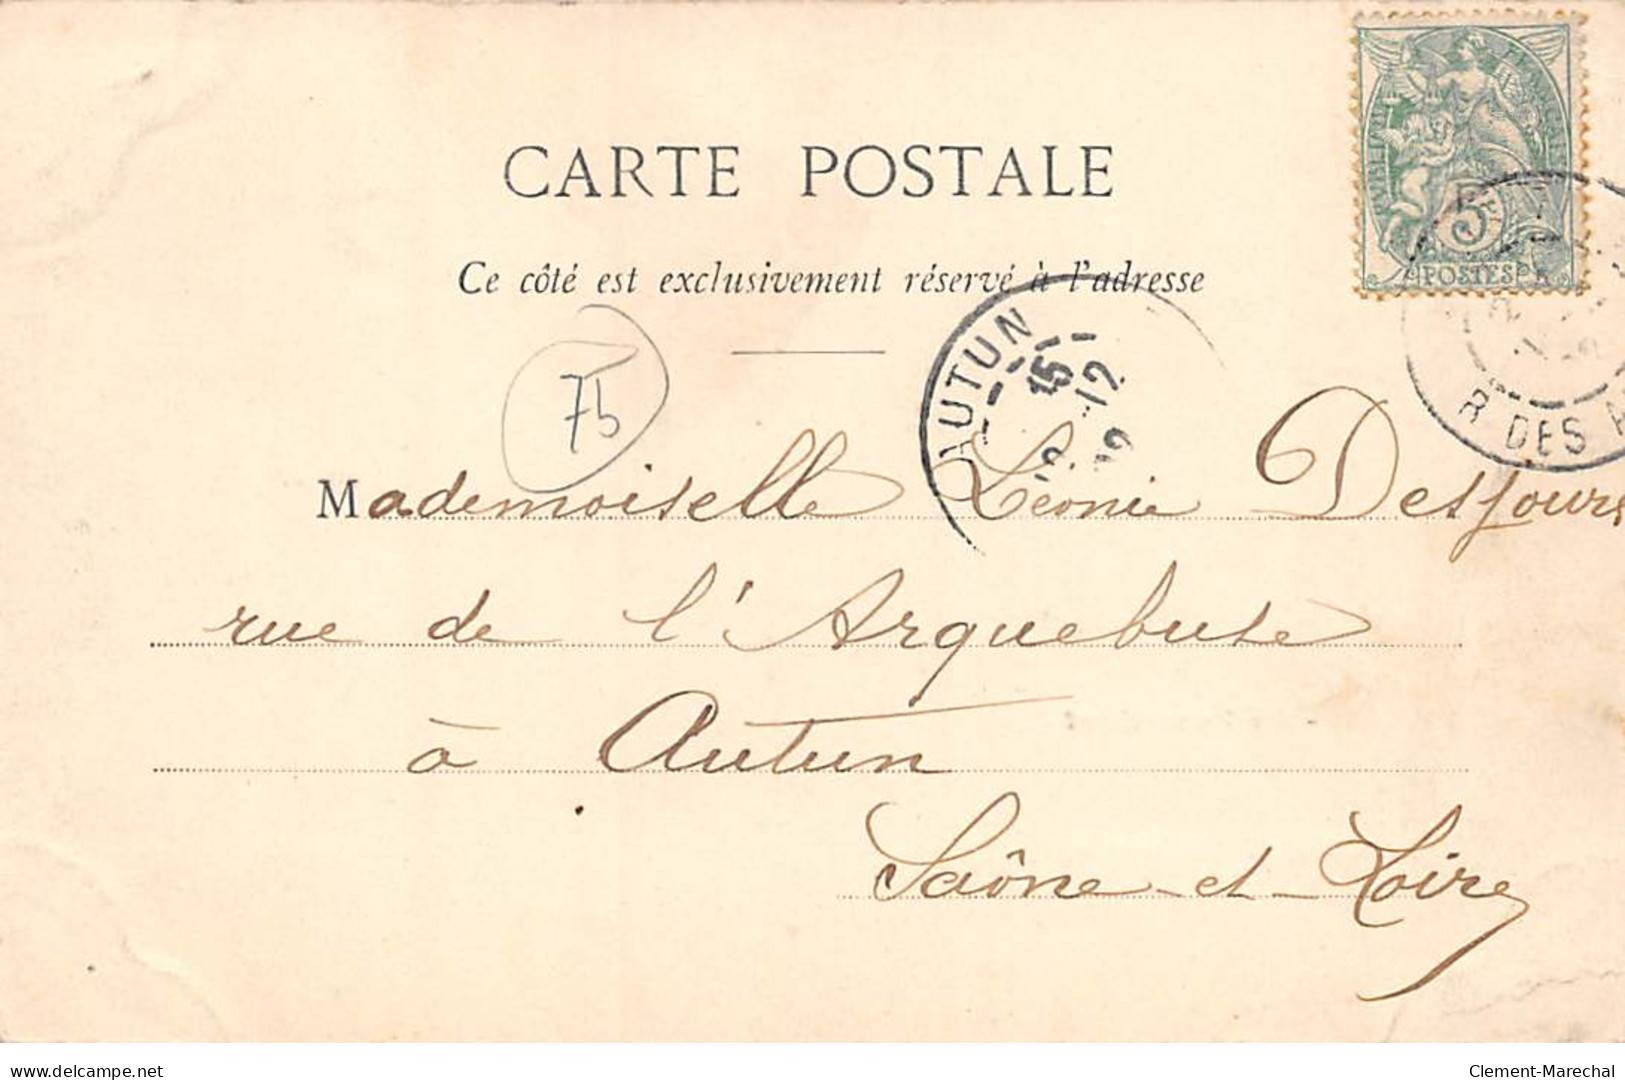 CARTE POSTALE
Ce côté est exclusivement réservé à l'adresse
75
AUTUN
15
12
R DES
5
POSTES
Mademoiselle Léonie Desjours
rue de l'Arquebuse
à Autun
Saône-et-Loire
delcampe.net
Clement-Marechal